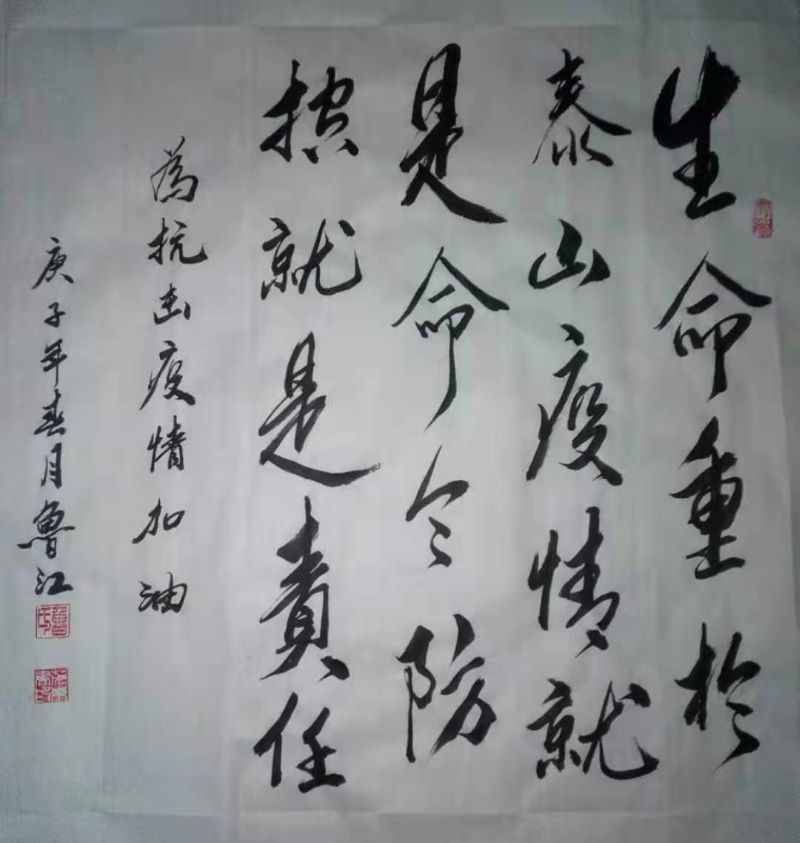 生命重於
泰山疫情就
是命令防
控就是責任
為抗击疫情加油
庚子年春月魯江